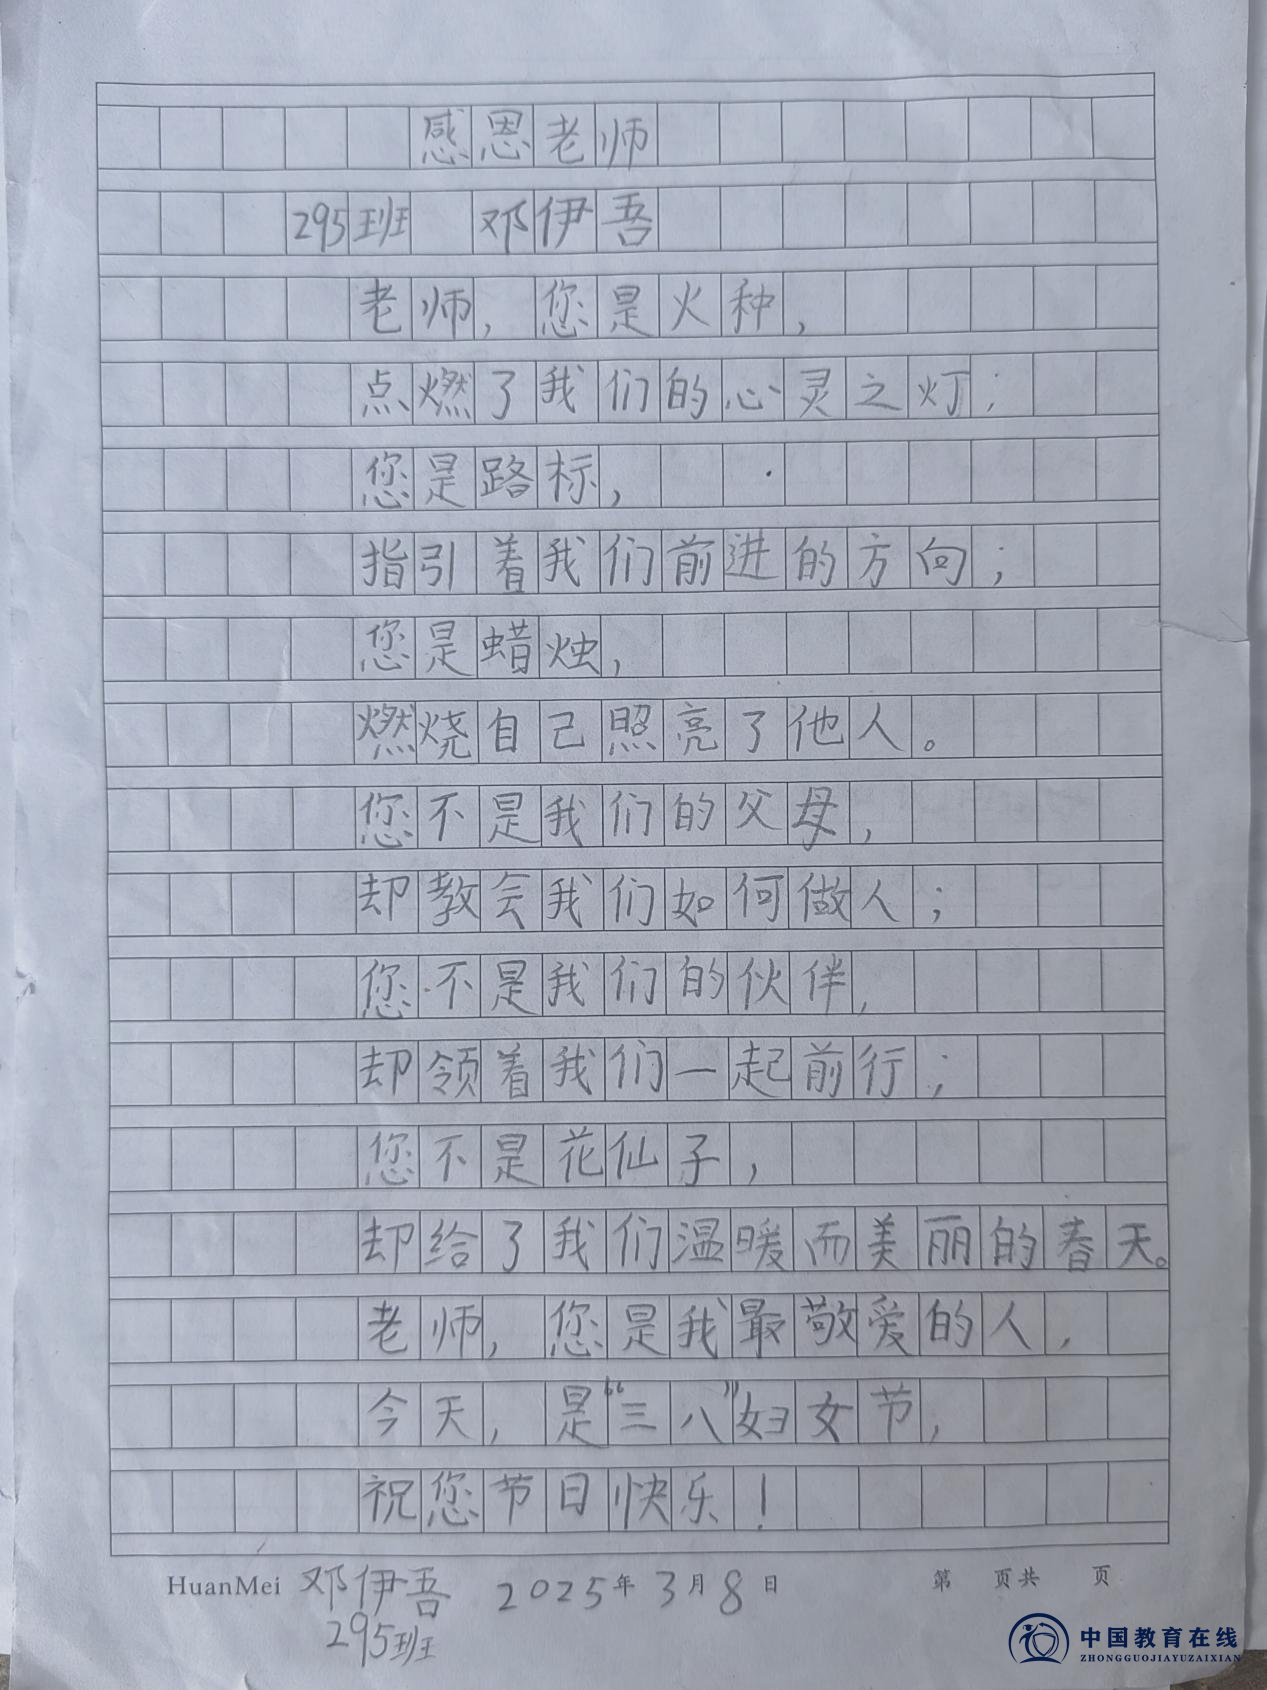 感恩老师
295班 邓伊吾
老师，您是火种，
点燃了我们的心灵之灯；
您是路标，
指引着我们前进的方向；
您是蜡烛，
燃烧自己照亮了他人。
您不是我们的父母，
却教会我们如何做人；
您不是我们的伙伴，
却领着我们一起前行；
您不是花仙子，
却给了我们温暖而美丽的春天。
老师，您是我最敬爱的人，
今天，是“三八”妇女节，
祝您节日快乐！
HuanMei 邓伊吾 2025年3月8日 第 页共 页
295班
中国教育在线
ZHONGGUOJIAYUZAIXIAN